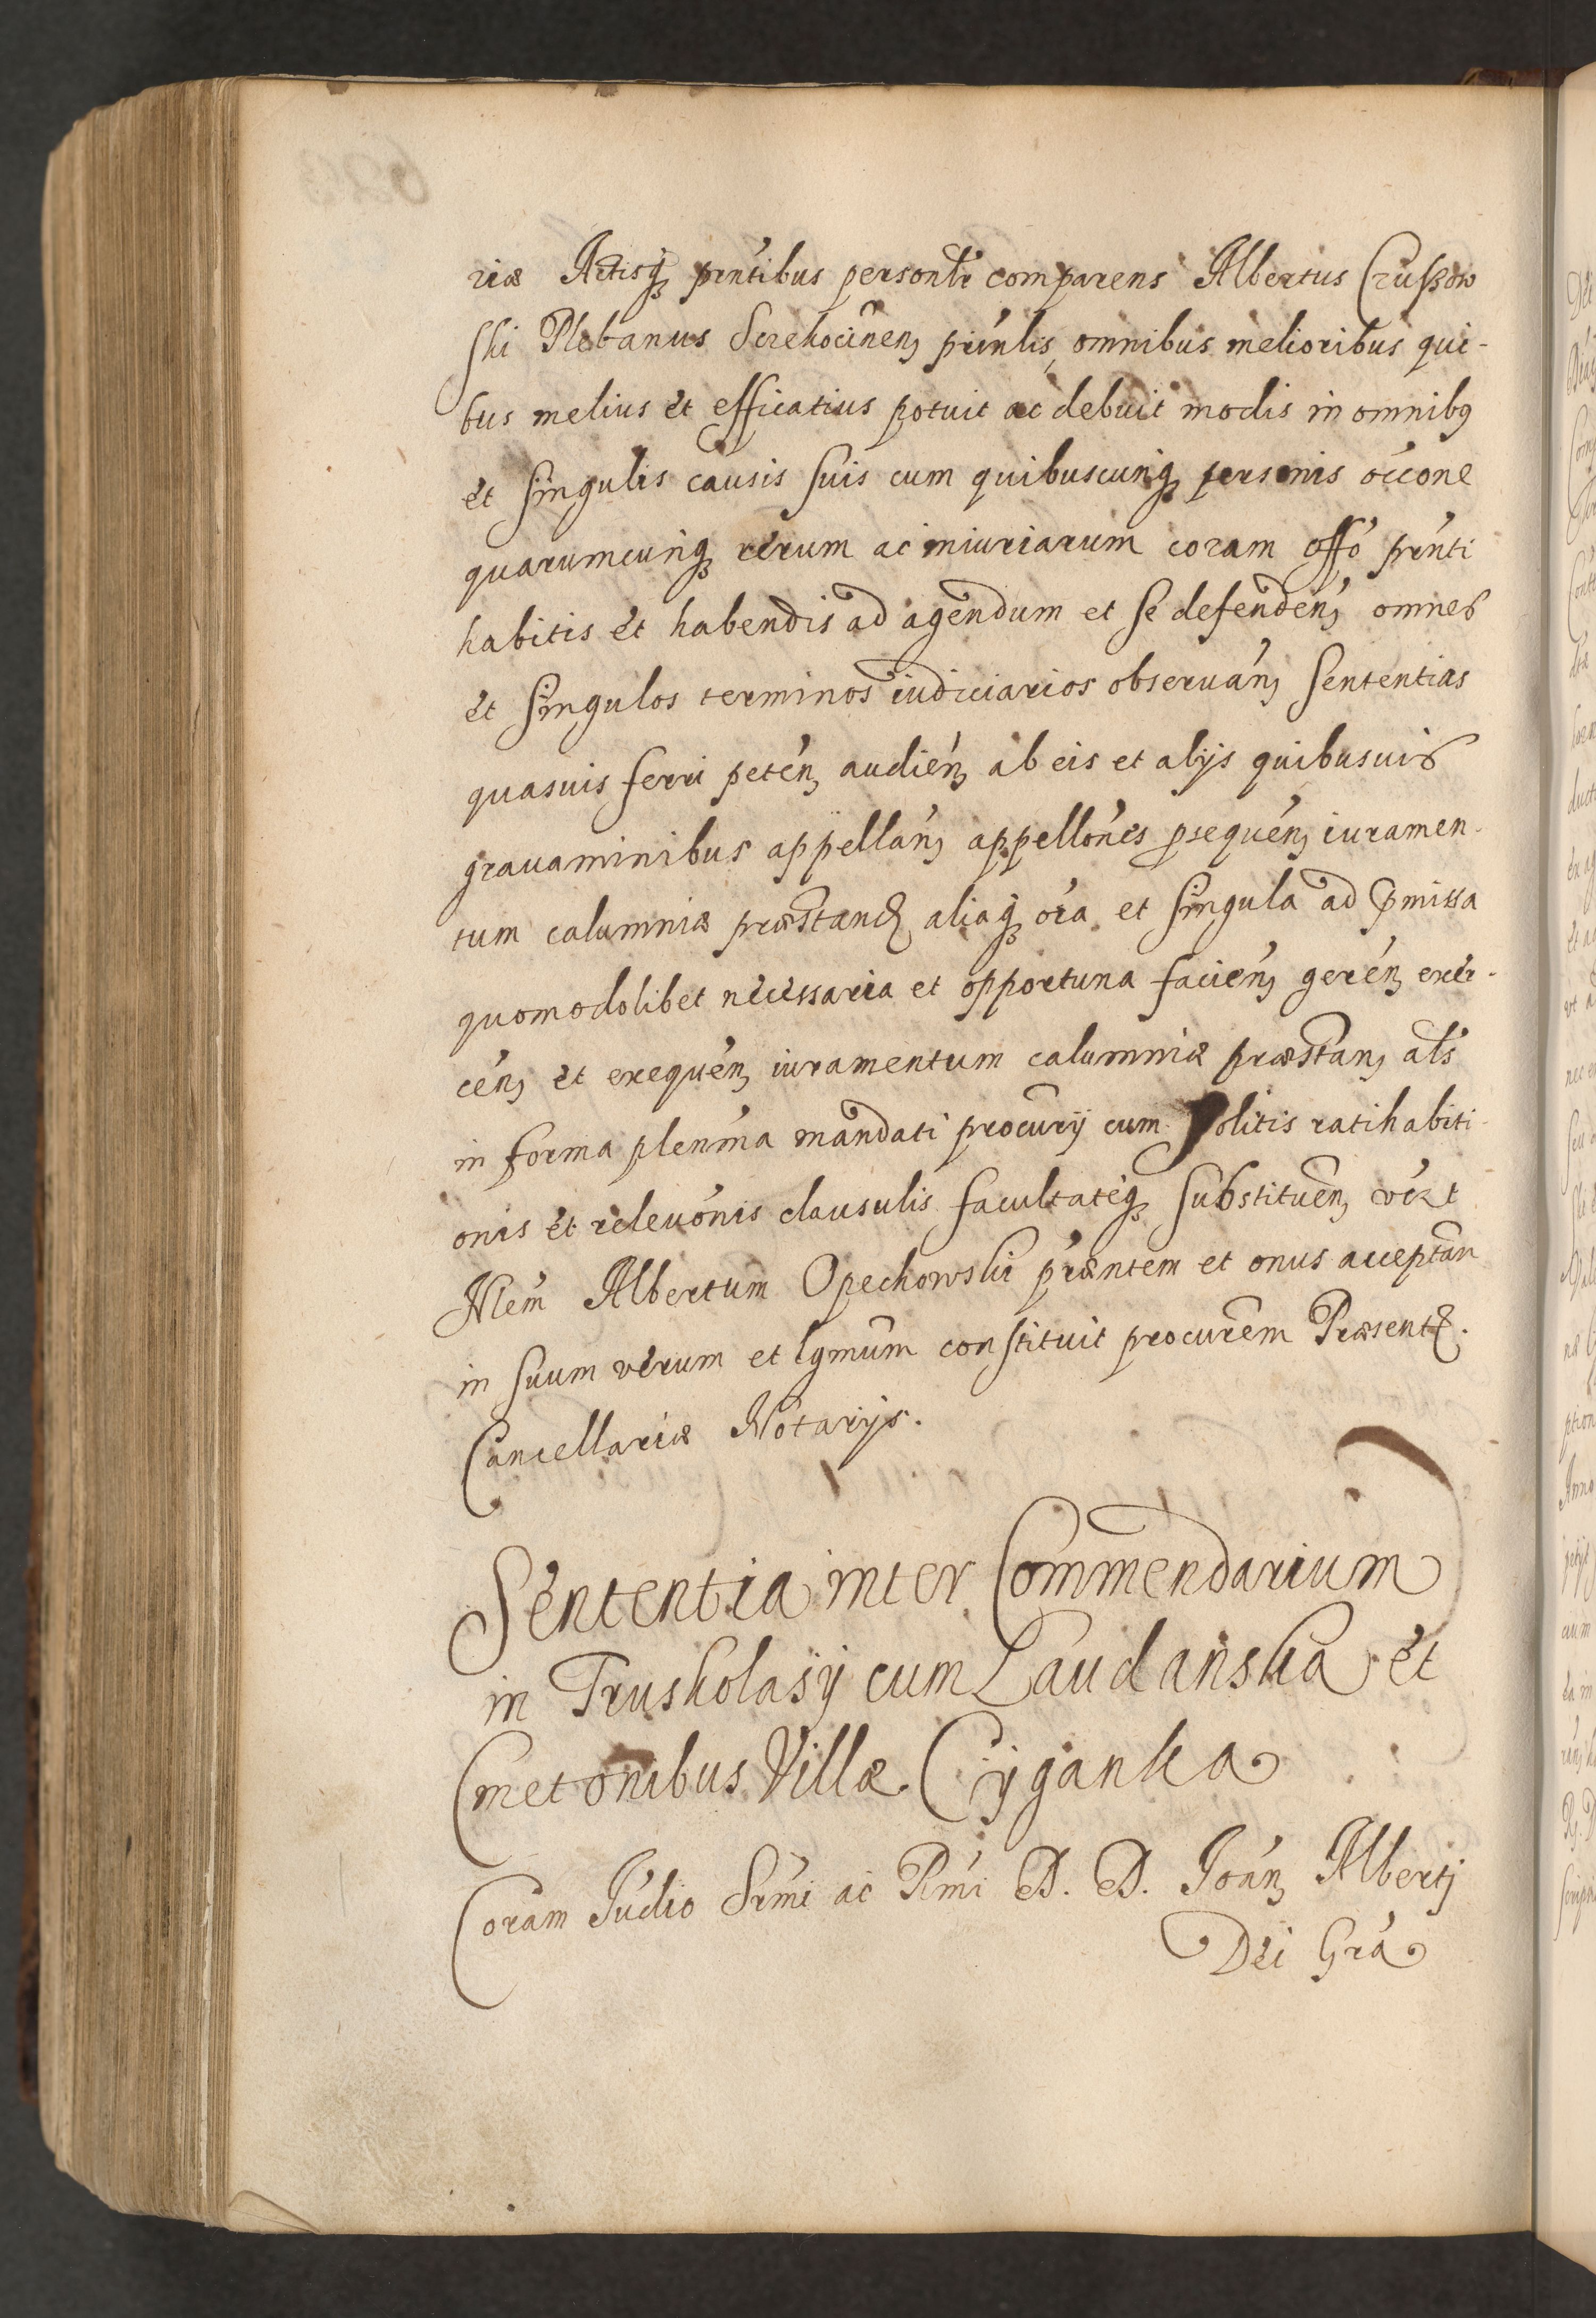 riæ Actisq́ꝫ pŕntibus personĺr comparens Albertus Czuszow
ski Plebanus Szczekocinenꝫ pŕinlis omnibus melioribus qui-
bus melius et efficatius potuit ac debuit modis in omnibꝯ
et singulis causis suis cum quibuscunqꝫ personis oc̄cone
quarumcunqꝫ rerum ac iniuriarum coram offó pŕnti
habitis et habendis ad agendum et se defendenꝫ omnes
et singulos terminos iudiciarios obseruánꝫ sententias
quasuis ferri peténꝫ audiénꝫ ab eis et alijs quibusuis
grauaminibus appellánꝫ appellónes ꝓsequénꝫ iuramen-
tum calumniæ præstandꝫ aliaq́ꝫ oía et singula ad p̄missa
quomodolibet necessaria et opportuna faciénꝫ gerénꝫ exer-
cénꝫ et exequénꝫ iuramentum calumniæ præstanꝫ aĺs
in forma pleńma mandati procurij cum solitis ratihabiti-
onis et releuónis clausulis facultateq́ꝫ substituénꝫ véꝫt
Nlem̄ Albertum Opechowski pŕæntem et onus acceptan
in suum verum et lgmum̄ constituit procurem̄ Præsentꝫ.
Cancellariæ Notarijs.
Sententia inter Commendarium
in Truskolasÿ cum Laudańska et
Cmetonibus Villæ Cÿganka
Coram Iudio Sŕmi ac Rḿi D. D. Ioánꝫ Albertj
Dei Grá